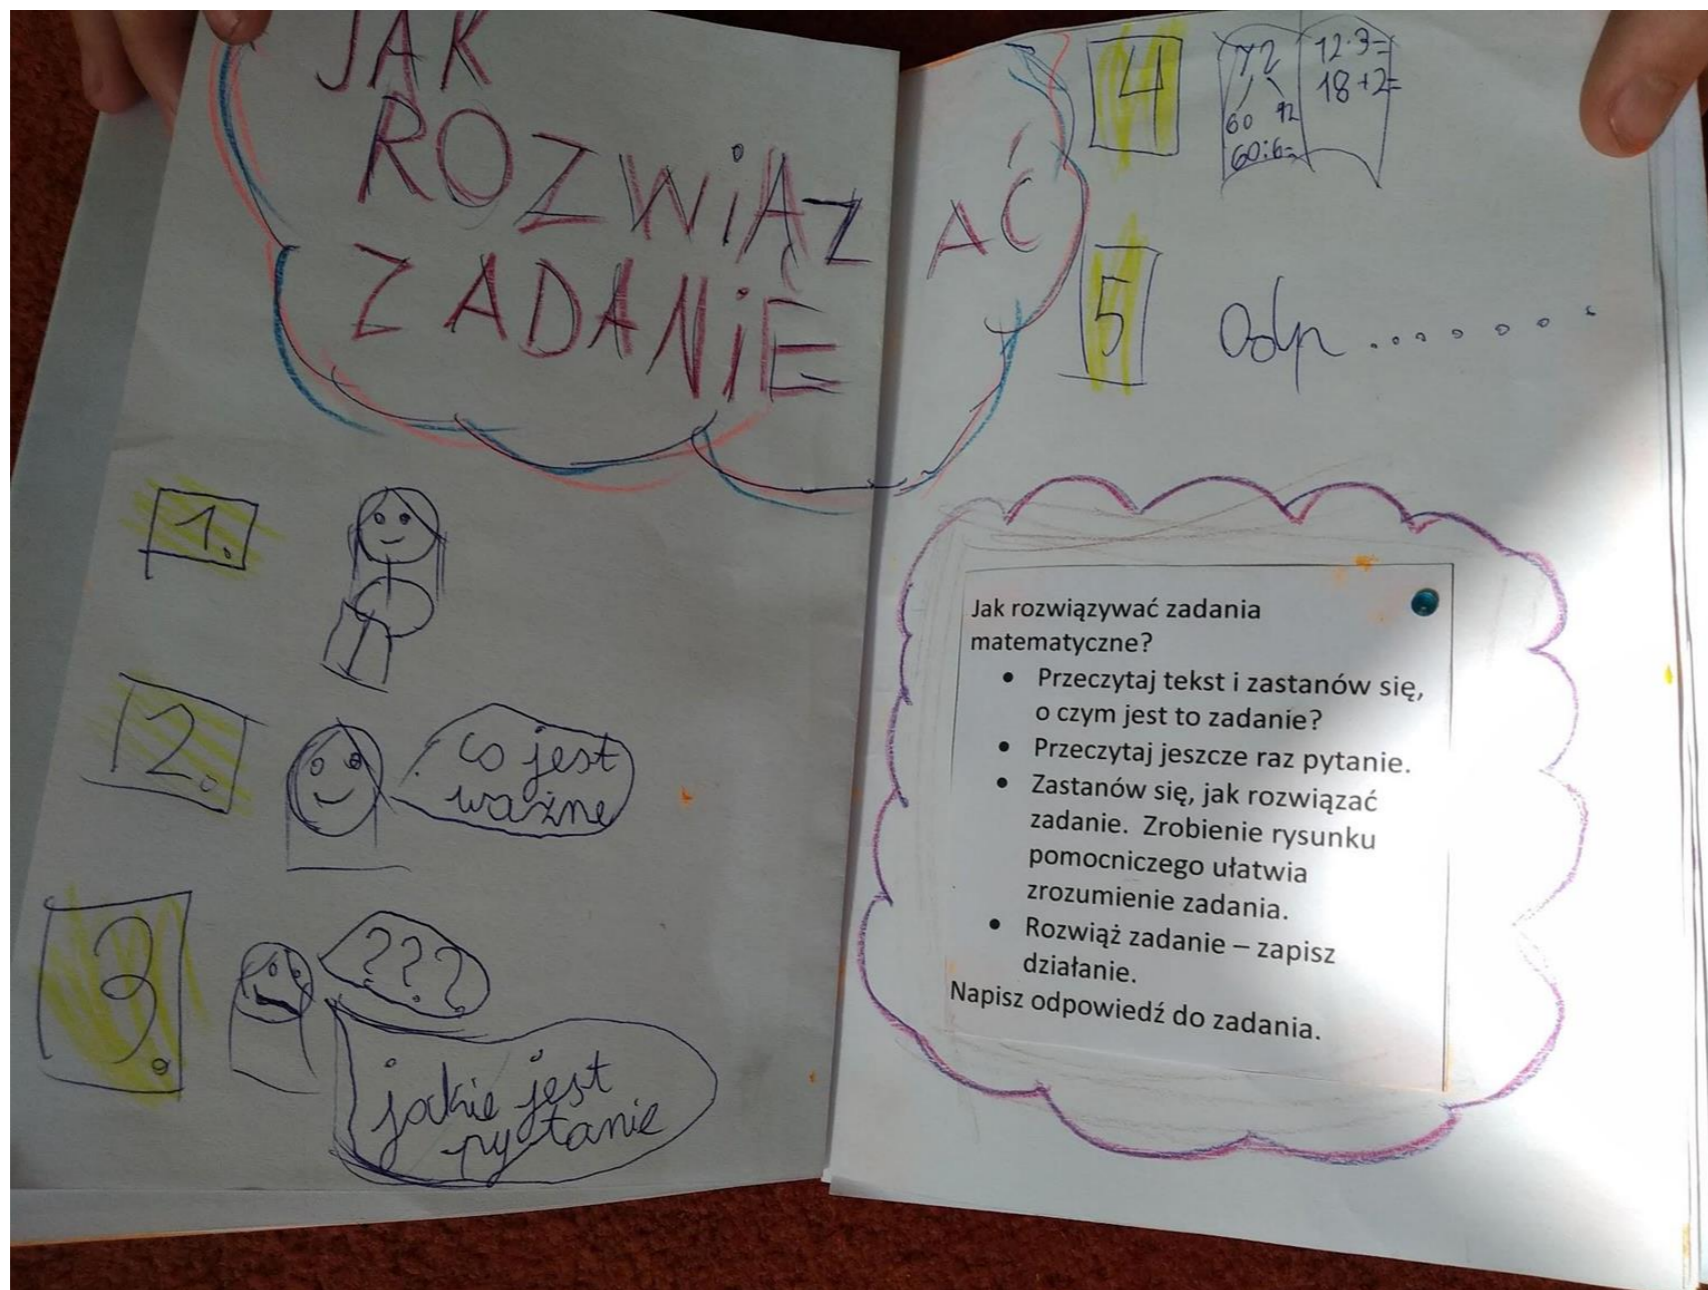 JAK
ROZWIĄZAĆ
ZADANIE
1.
2.
co jest
ważne
3.
???
jakie jest
pytanie
4
72
60 12
60:6=
12·3=
18+2=
5
Odp.......
Jak rozwiązywać zadania
matematyczne?
• Przeczytaj tekst i zastanów się,
o czym jest to zadanie?
• Przeczytaj jeszcze raz pytanie.
• Zastanów się, jak rozwiązać
zadanie. Zrobienie rysunku
pomocniczego ułatwia
zrozumienie zadania.
• Rozwiąż zadanie – zapisz
działanie.
Napisz odpowiedź do zadania.